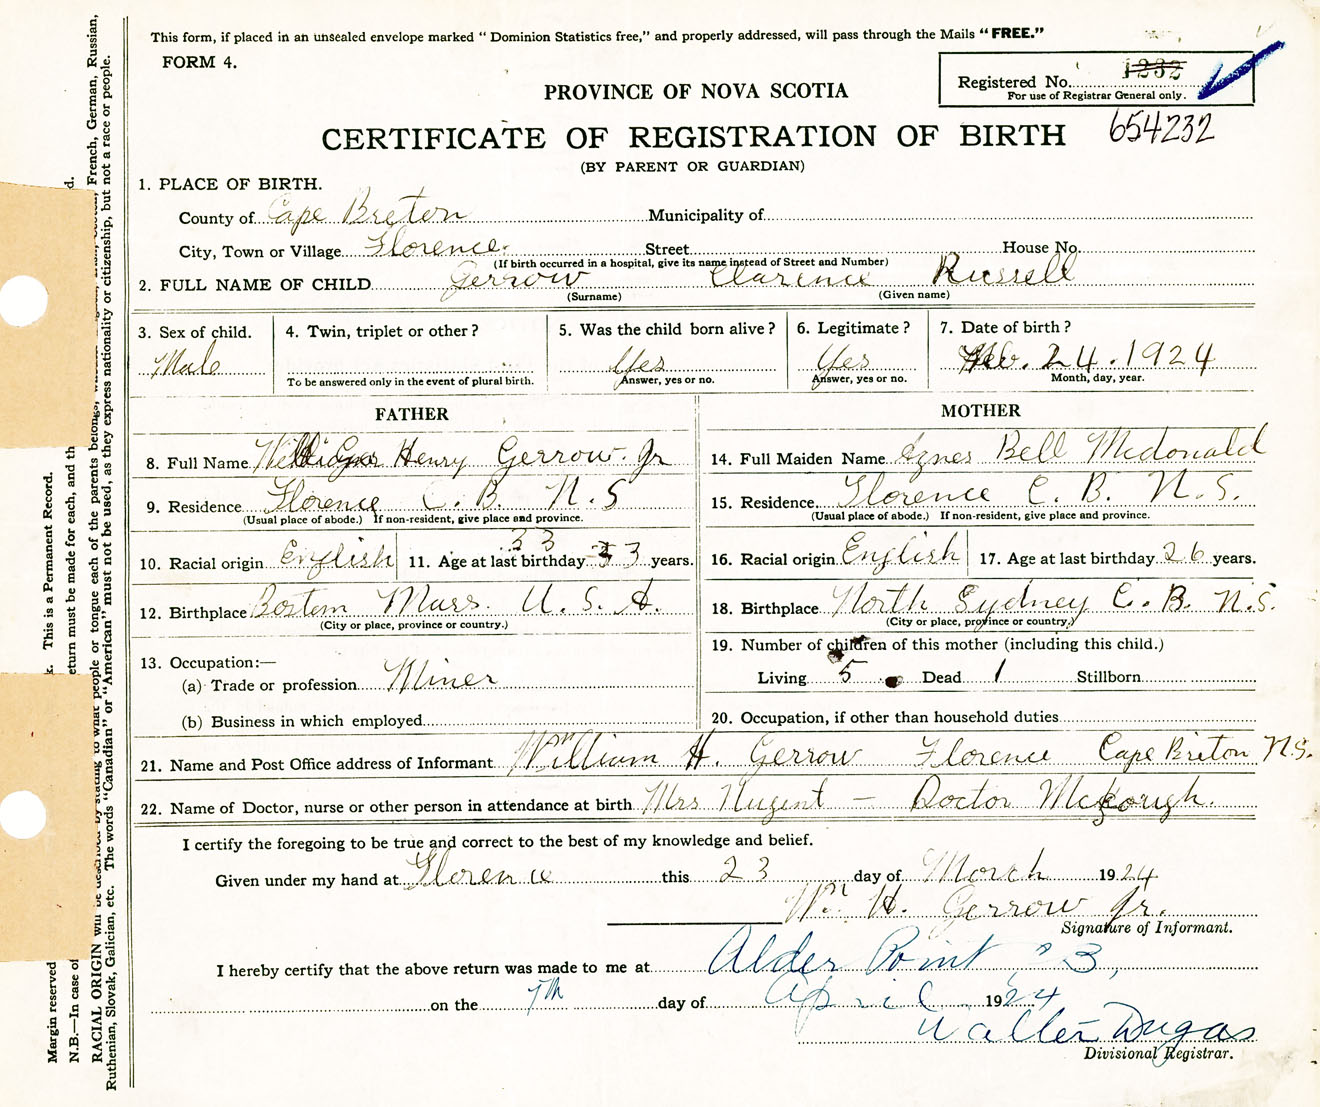 This form, if placed in an unsealed envelope marked "Dominion Statistics free," and properly addressed, will pass through the Mails "FREE."
FORM 4.
Registered No. 1232
For use of Registrar General only.
PROVINCE OF NOVA SCOTIA
654232
CERTIFICATE OF REGISTRATION OF BIRTH
(BY PARENT OR GUARDIAN)
1. PLACE OF BIRTH.
County of Cape Breton Municipality of
City, Town or Village Florence. Street House No.
(If birth occurred in a hospital, give its name instead of Street and Number)
2. FULL NAME OF CHILD Gerrow Clarence Russell
(Surname) (Given name)
3. Sex of child. 4. Twin, triplet or other? 5. Was the child born alive? 6. Legitimate? 7. Date of birth?
Male Yes Yes Feb. 24. 1924
To be answered only in the event of plural birth. Answer, yes or no. Answer, yes or no. Month, day, year.
FATHER
8. Full Name William Henry Gerrow. Jr
9. Residence Florence C. B. N. S
(Usual place of abode.) If non-resident, give place and province.
10. Racial origin English 11. Age at last birthday 33 33 years.
12. Birthplace Boston Mass. U. S. A.
(City or place, province or country.)
13. Occupation:—
(a) Trade or profession Miner
(b) Business in which employed
MOTHER
14. Full Maiden Name Agnes Bell Mcdonald
15. Residence Florence C. B. N. S.
(Usual place of abode.) If non-resident, give place and province.
16. Racial origin English 17. Age at last birthday 26 years.
18. Birthplace North Sydney C. B. N. S.
(City or place, province or country.)
19. Number of children of this mother (including this child.)
Living 5 Dead 1 Stillborn
20. Occupation, if other than household duties
21. Name and Post Office address of Informant William H. Gerrow Florence Cape Breton N.S.
22. Name of Doctor, nurse or other person in attendance at birth Mrs Nugent — Doctor McKeough.
I certify the foregoing to be true and correct to the best of my knowledge and belief.
Given under my hand at Florence this 23 day of March 1924
Wm. H. Gerrow Jr.
Signature of Informant.
I hereby certify that the above return was made to me at Alder Point C B,
on the 7th day of April 1924
Walter Dugas
Divisional Registrar.
Margin reserved
k. This is a Permanent Record.
N.B.—In case of
eturn must be made for each, and th
d.
RACIAL ORIGIN will be described by stating to what people or tongue each of the parents belongs, French, German, Russian,
Ruthenian, Slovak, Galician, etc. The words "Canadian" or "American" must not be used, as they express nationality or citizenship, but not a race or people.